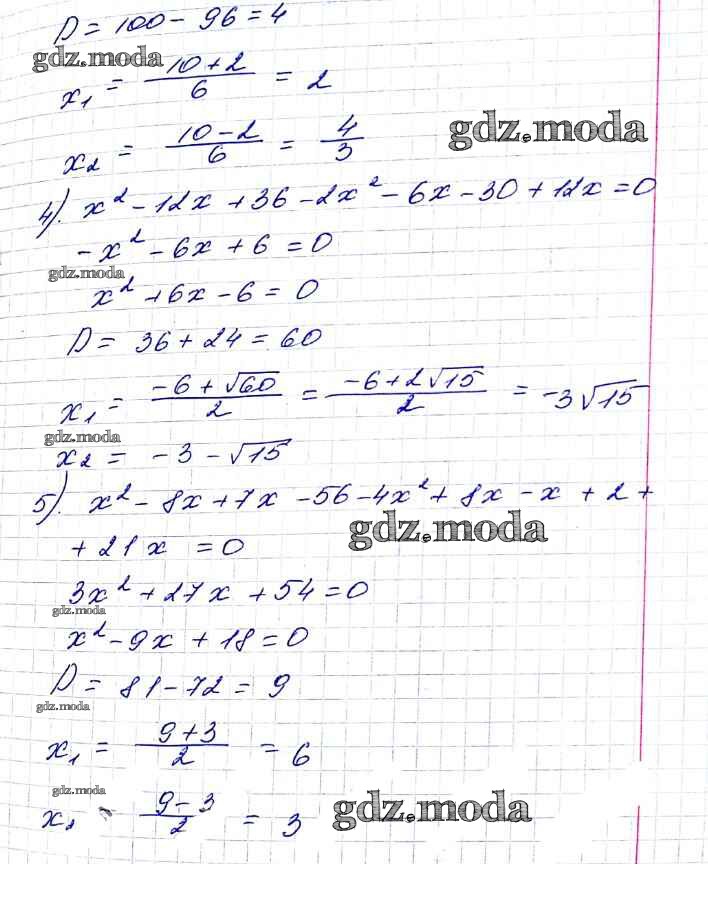 D = 100 - 96 = 4
gdz.moda
x₁ = (10 + 2)/6 = 2
x₂ = (10 - 2)/6 = 4/3
gdz.moda
4). x² - 12x + 36 - 2x² - 6x - 30 + 12x = 0
-x² - 6x + 6 = 0
gdz.moda
x² + 6x - 6 = 0
D = 36 + 24 = 60
x₁ = (-6 + √60)/2 = (-6 + 2√15)/2 = -3√15
gdz.moda
x₂ = -3 - √15
5). x² - 8x + 7x - 56 - 4x² + 8x - x + 2 +
gdz.moda
+ 21x = 0
3x² + 27x + 54 = 0
gdz.moda
x² - 9x + 18 = 0
D = 81 - 72 = 9
gdz.moda
x₁ = (9 + 3)/2 = 6
gdz.moda
x₂ = (9 - 3)/2 = 3
gdz.moda